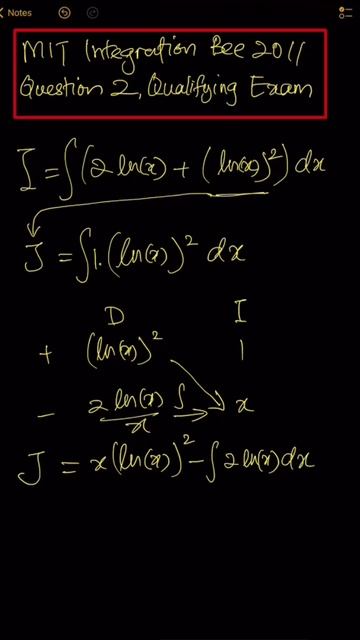 Notes
MIT Integration Bee 2011
Question 2, Qualifying Exam
I = ∫(2 ln(x) + (ln(x))²) dx
J = ∫1.(ln(x))² dx
D I
+ (ln(x))² 1
- 2 ln(x)/x ∫ x
J = x(ln(x))² - ∫2 ln(x) dx